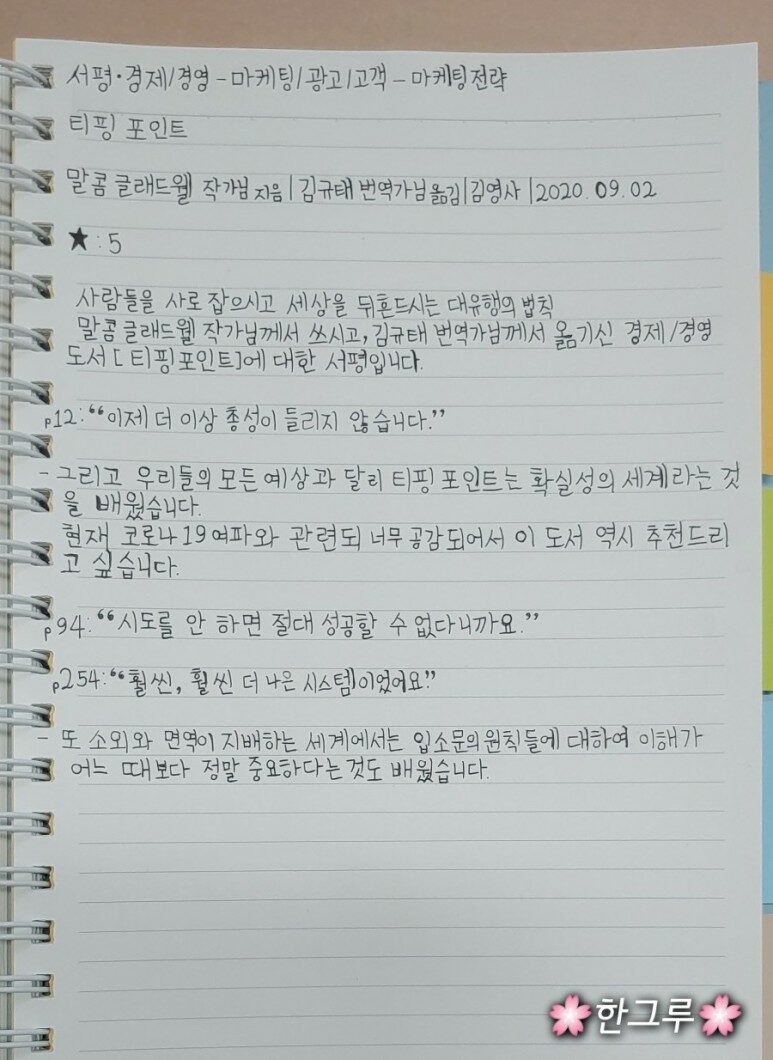 서평·경제/경영 - 마케팅/광고/고객 - 마케팅전략
티핑 포인트
말콤 글래드웰 작가님 지음 | 김규태 번역가님 옮김 | 김영사 | 2020. 09. 02
★ : 5
사람들을 사로 잡으시고 세상을 뒤흔드시는 대유행의 법칙
말콤글래드웰 작가님께서 쓰시고, 김규태 번역가님께서 옮기신 경제/경영
도서 [티핑포인트]에 대한 서평입니다.
p12: “이제 더 이상 총성이 들리지 않습니다.”
- 그리고 우리들의 모든 예상과 달리 티핑 포인트는 확실성의 세계라는 것
을 배웠습니다.
현재 코로나19여파와 관련되 너무 공감되어서 이 도서 역시 추천드리
고 싶습니다.
p94: “시도를 안 하면 절대 성공할 수 없다니까요.”
p254: “훨씬, 훨씬 더 나은 시스템이었어요.”
- 또 소외와 면역이 지배하는 세계에서는 입소문의원칙들에 대하여 이해가
어느 때보다 정말 중요하다는 것도 배웠습니다.
🌸한그루🌸